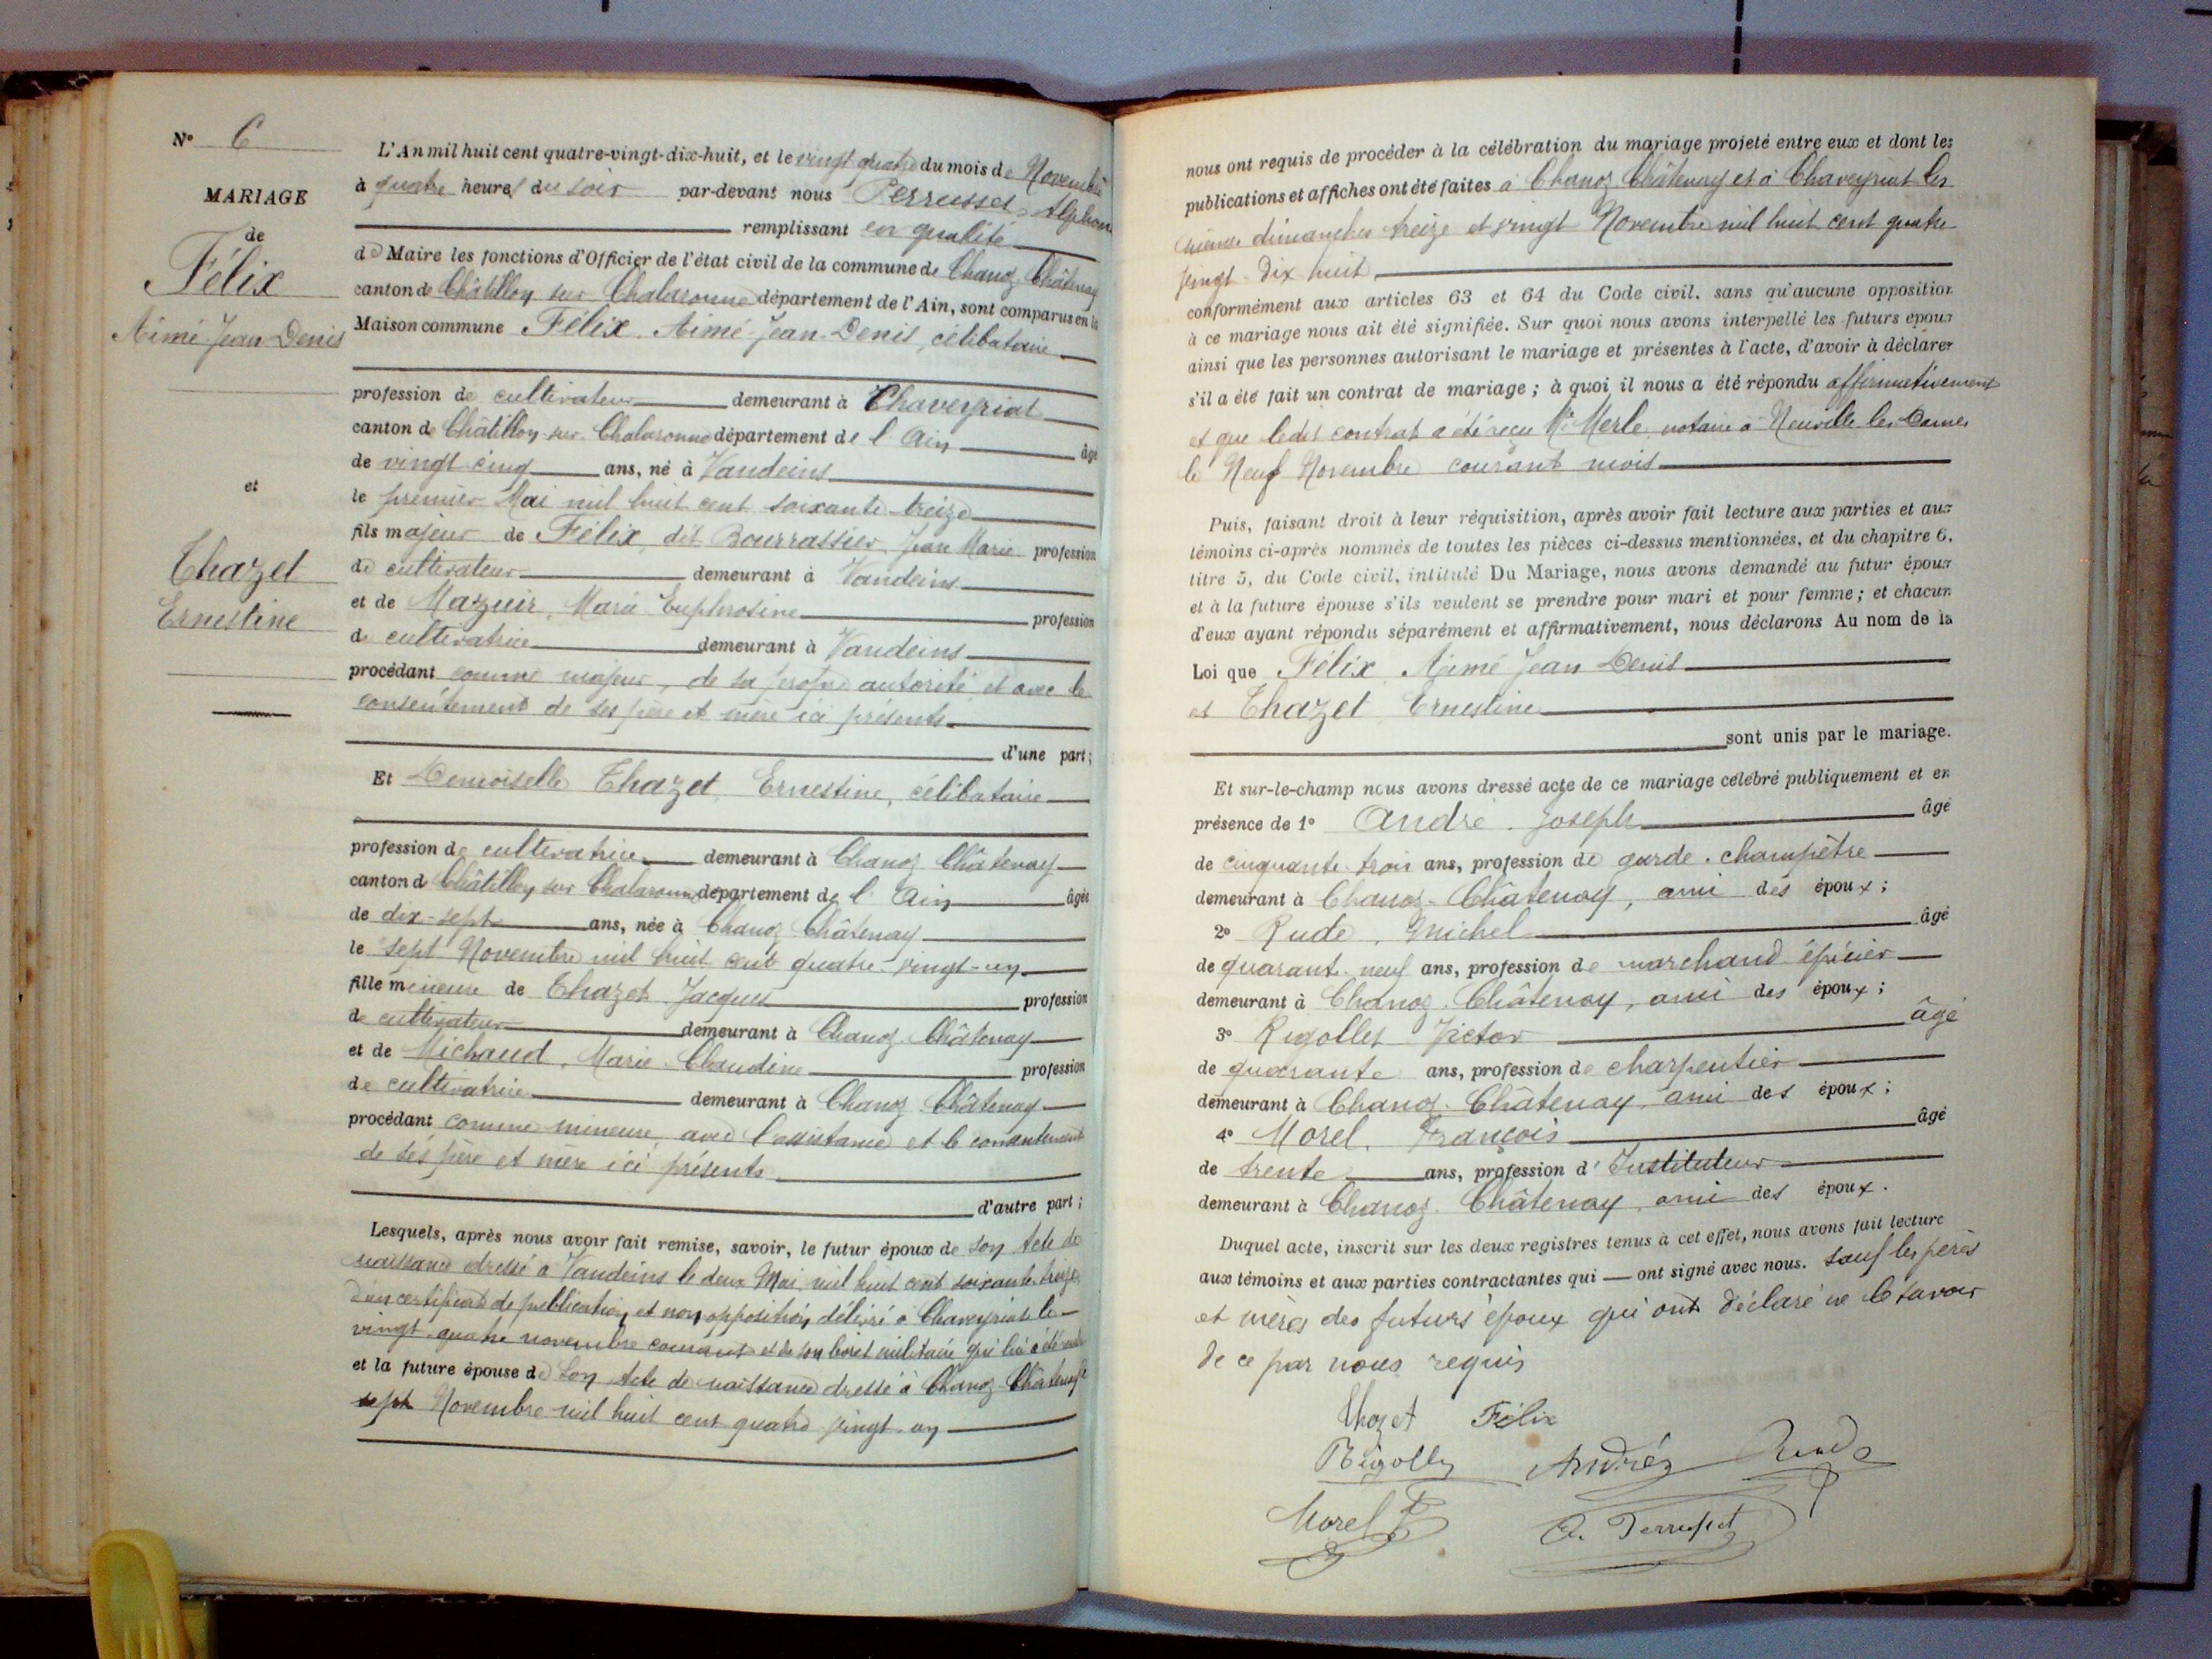 N° 6
MARIAGE
de
Félix
Aimé Jean Denis
et
Thazet
Ernestine
L'An mil huit cent quatre-vingt-dix-huit, et le vingt quatre du mois de Novembre
à quatre heures du soir par-devant nous Perrusset, Alphonse
remplissant en qualité
de Maire les fonctions d'Officier de l'état civil de la commune de Chanoz-Châtenay
canton de Châtillon sur Chalaronne département de l'Ain, sont comparus en la
Maison commune Félix, Aimé-Jean-Denis, célibataire
profession de cultivateur demeurant à Chaveyriat
canton de Châtillon-sur-Chalaronne département de l'Ain âgé
de vingt-cinq ans, né à Vandeins
le premier Mai mil huit cent soixante-treize
fils majeur de Félix, dit Bourrassier, Jean Marie profession
de cultivateur demeurant à Vandeins
et de Mazuir, Marie Euphrosine profession
de cultivatrice demeurant à Vandeins
procédant comme majeur, de sa propre autorité et avec le
consentement de ses père et mère ici présents
d'une part;
Et Demoiselle Thazet, Ernestine, célibataire
profession de cultivatrice demeurant à Chanoz Châtenay
canton de Châtillon sur Chalaronne département de l'Ain âgée
de dix-sept ans, née à Chanoz Châtenay
le sept Novembre mil huit cent quatre-vingt-un
fille mineure de Thazet Jacques profession
de cultivateur demeurant à Chanoz-Châtenay
et de Michaud, Marie-Claudine profession
de cultivatrice demeurant à Chanoz Châtenay
procédant comme mineure, avec l'assistance et le consentement
de ses père et mère ici présents
d'autre part;
Lesquels, après nous avoir fait remise, savoir, le futur époux de son Acte de
naissance dressé à Vandeins le deux Mai mil huit cent soixante treize,
d'un certificat de publication et non opposition délivré à Chaveyriat le
vingt-quatre novembre courant et de son livret militaire qui lui a été rendu
et la future épouse de Son Acte de naissance dressé à Chanoz-Châtenay le
sept Novembre mil huit cent quatre vingt-un
nous ont requis de procéder à la célébration du mariage projeté entre eux et dont les
publications et affiches ont été faites à Chanoz Châtenay et à Chaveyriat les
dimanches treize et vingt Novembre mil huit cent quatre
vingt-dix huit
conformément aux articles 63 et 64 du Code civil, sans qu'aucune opposition
à ce mariage nous ait été signifiée. Sur quoi nous avons interpellé les futurs époux
ainsi que les personnes autorisant le mariage et présentes à l'acte, d'avoir à déclarer
s'il a été fait un contrat de mariage; à quoi il nous a été répondu affirmativement
et que ledit contrat a été reçu Me Merle, notaire à Neuville les Dames
le Neuf Novembre courant mois
Puis, faisant droit à leur réquisition, après avoir fait lecture aux parties et aux
témoins ci-après nommés de toutes les pièces ci-dessus mentionnées, et du chapitre 6,
titre 5, du Code civil, intitulé Du Mariage, nous avons demandé au futur époux
et à la future épouse s'ils veulent se prendre pour mari et pour femme; et chacun
d'eux ayant répondu séparément et affirmativement, nous déclarons Au nom de la
Loi que Félix, Aimé Jean Denis
et Thazet, Ernestine
sont unis par le mariage.
Et sur-le-champ nous avons dressé acte de ce mariage célébré publiquement et en
présence de 1° André, Joseph âgé
de cinquante-trois ans, profession de garde-champêtre
demeurant à Chanoz-Châtenay, ami des époux;
2° Rude, Michel âgé
de quarante-neuf ans, profession de marchand épicier
demeurant à Chanoz-Châtenay, ami des époux;
3° Rigollet Victor âgé
de quarante ans, profession de charpentier
demeurant à Chanoz-Châtenay, ami des époux;
4° Morel, François âgé
de trente ans, profession d'Instituteur
demeurant à Chanoz-Châtenay, ami des époux.
Duquel acte, inscrit sur les deux registres tenus à cet effet, nous avons fait lecture
aux témoins et aux parties contractantes qui ont signé avec nous. Sauf les pères
et mères des futurs époux qui ont déclaré ne le savoir
de ce par nous requis
Thozet Félix
Rigollet André Rude
Morel F A. Perrusset